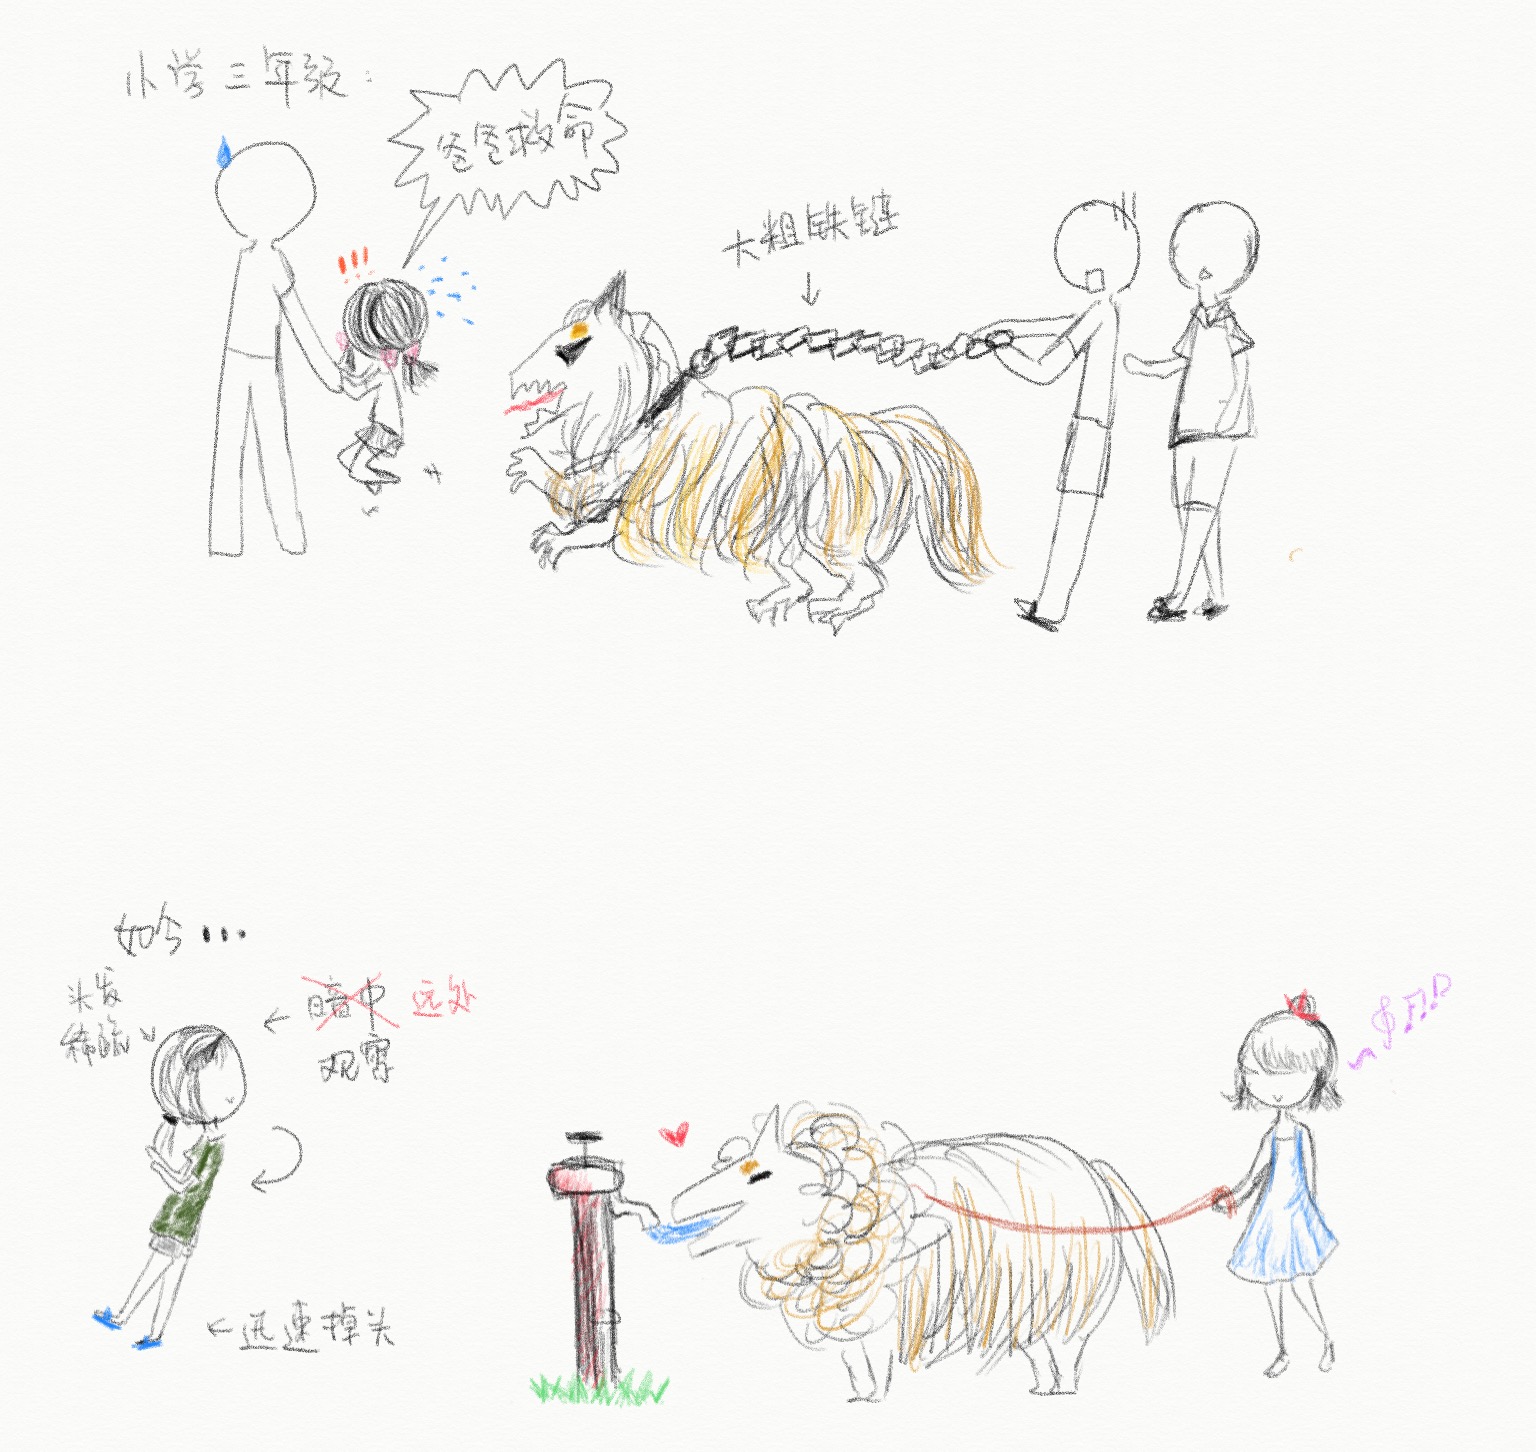 小学三年级：
爸爸救命
大粗铁链
如今...
头发
稀疏
暗中 远处
观察
迅速掉头